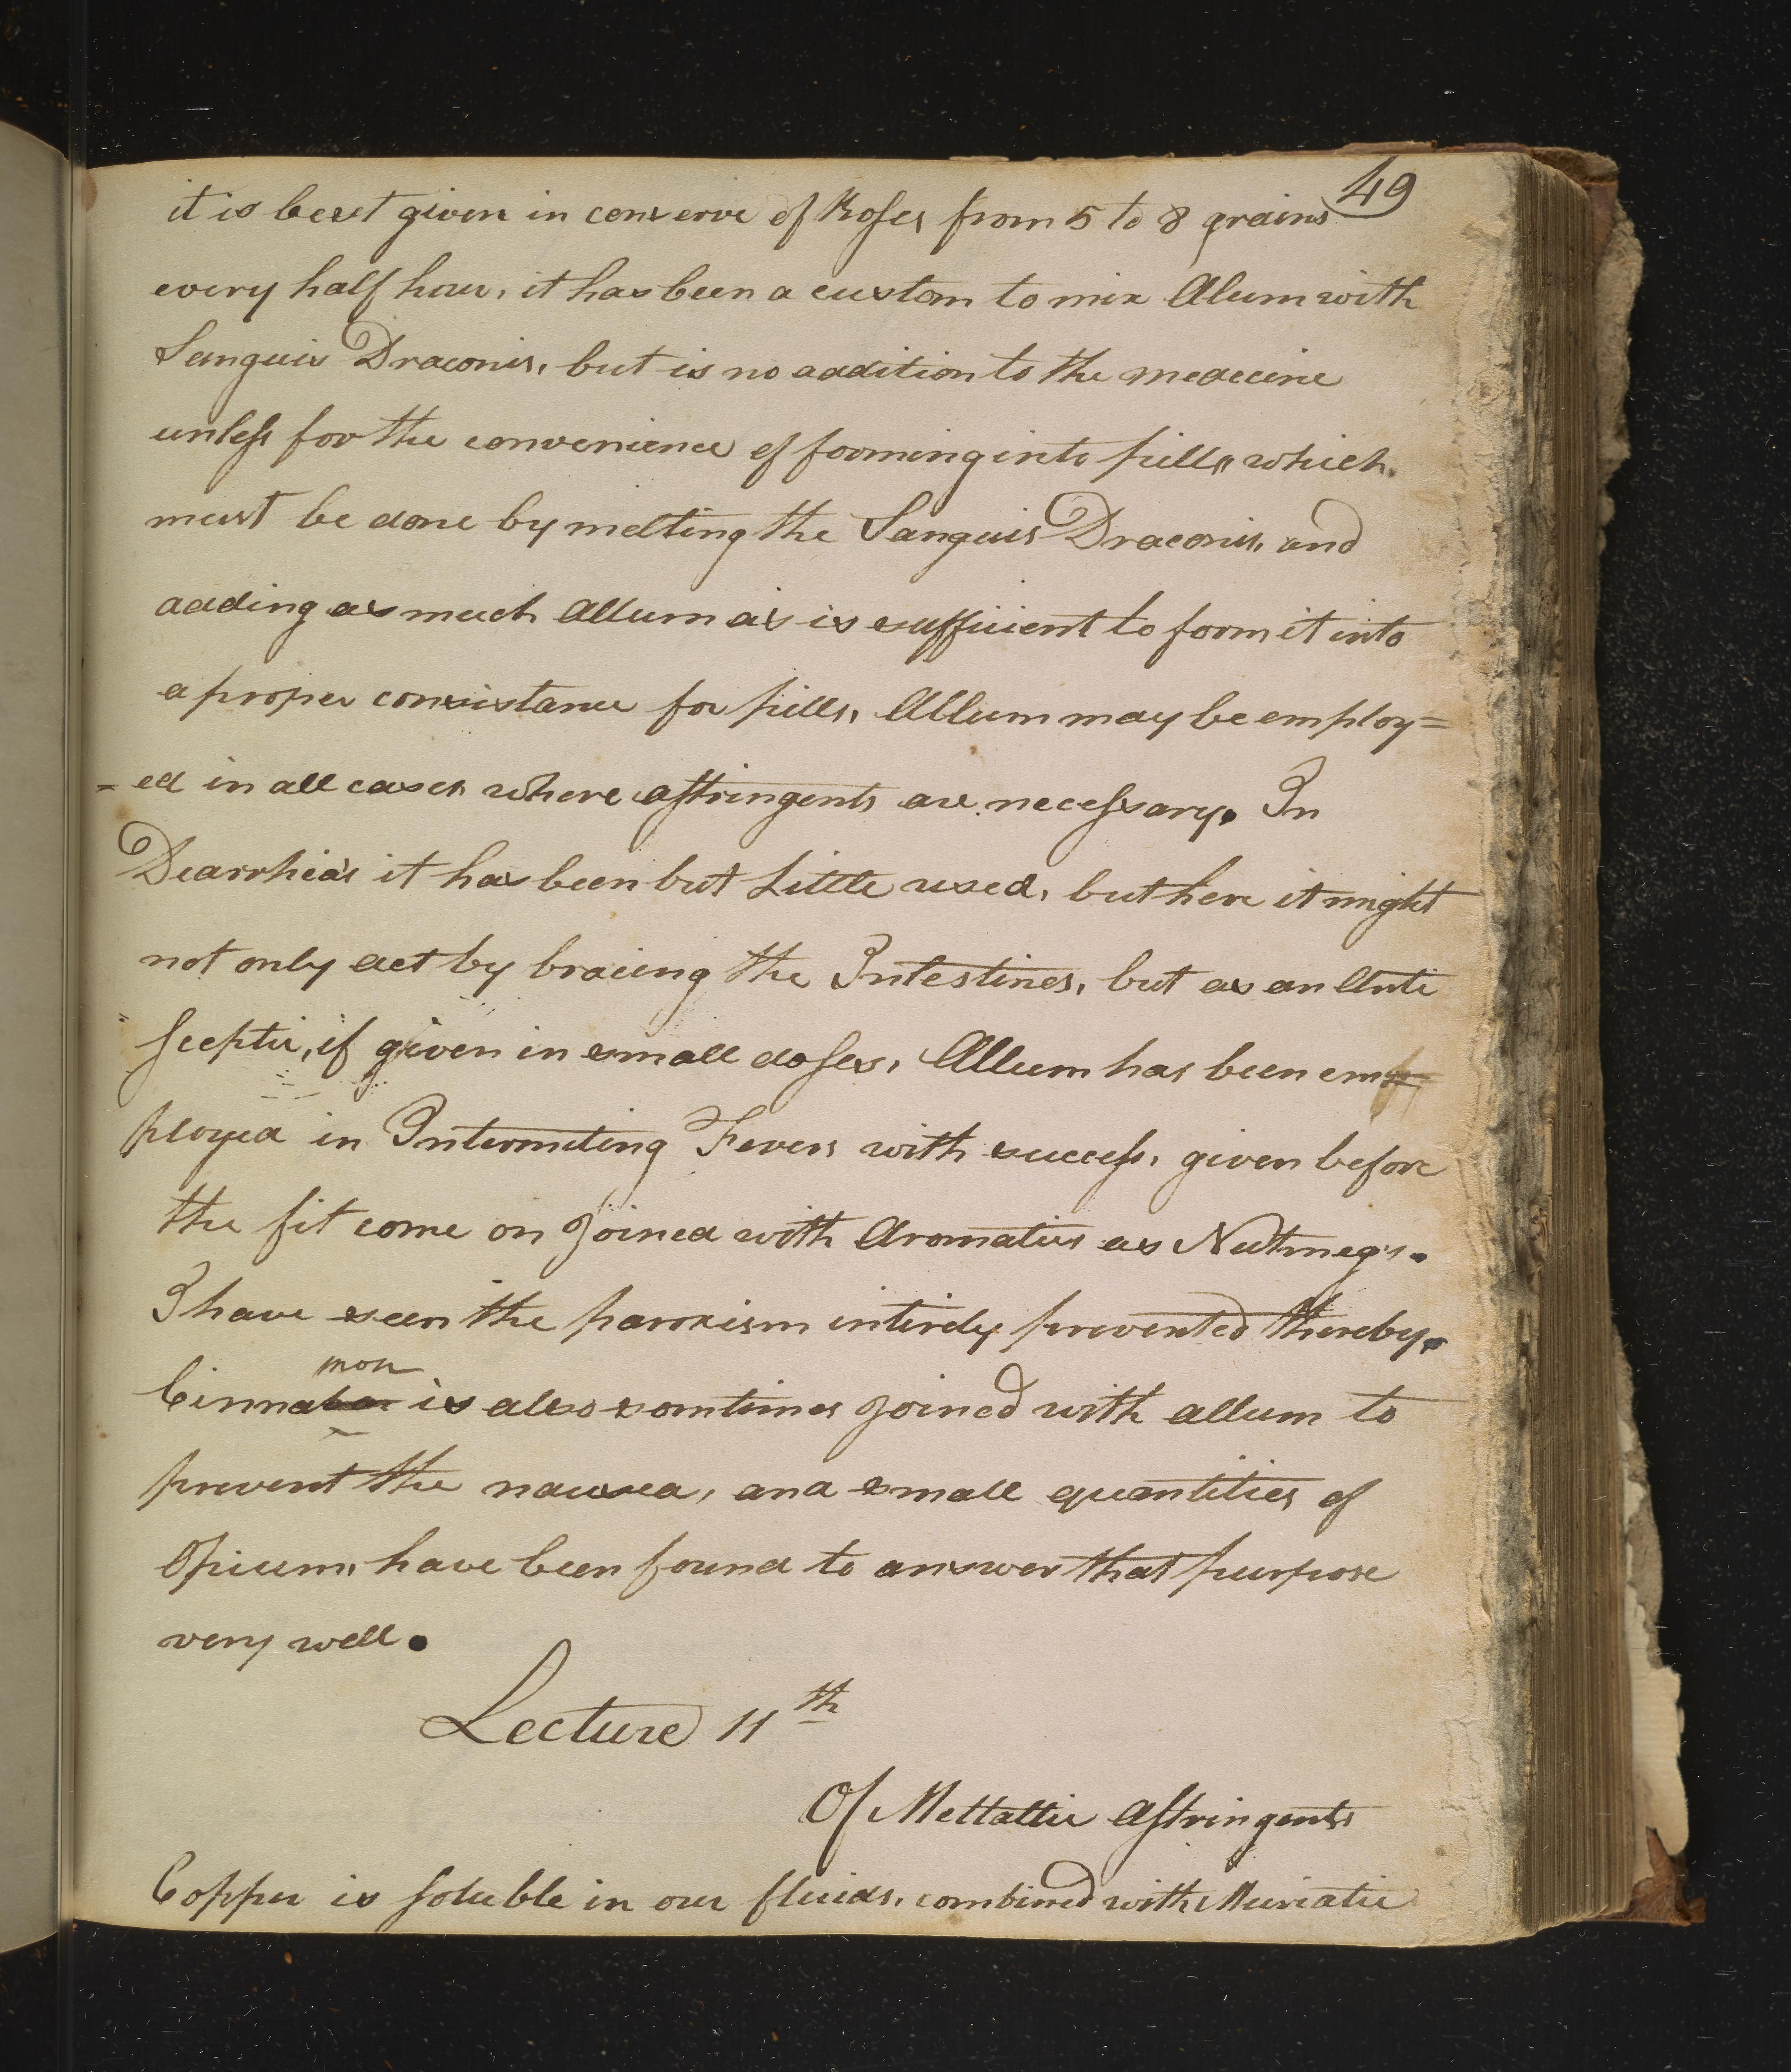 49
it is best given in conserve of Roses from 5 to 8 grains
every half hour, it has been a custom to mix Alum with
Sanguis Draconis, but is no addition to the medecine
unless for the convenience of forming into pills, which
must be done by melting the Sanguis Draconis, and
adding as much Allum as is sufficient to form it into
a proper consistance for pills, Allum may be employ=
=ed in all cases where astringents are necessary. In
Dearrhea's it has been but Little used, but here it might
not only act by bracing the Intestines, but as an Anti
Sceptic, if given in small doses, Allum has been em
ployed in Intermiting Fevers with success, given before
the fit come on Joined with Aromatics as Nutmeg's.
I have seen the paroxism intirely prevented thereby.
mon
Cinnabar is also somtimes Joined with allum to
prevent the nausea, and small quantities of
Opium, have been found to answer that purpose
very well.
Lecture 11th
Of Mettallic Astringents
Copper is soluble in our fluids, combined with Muriatic